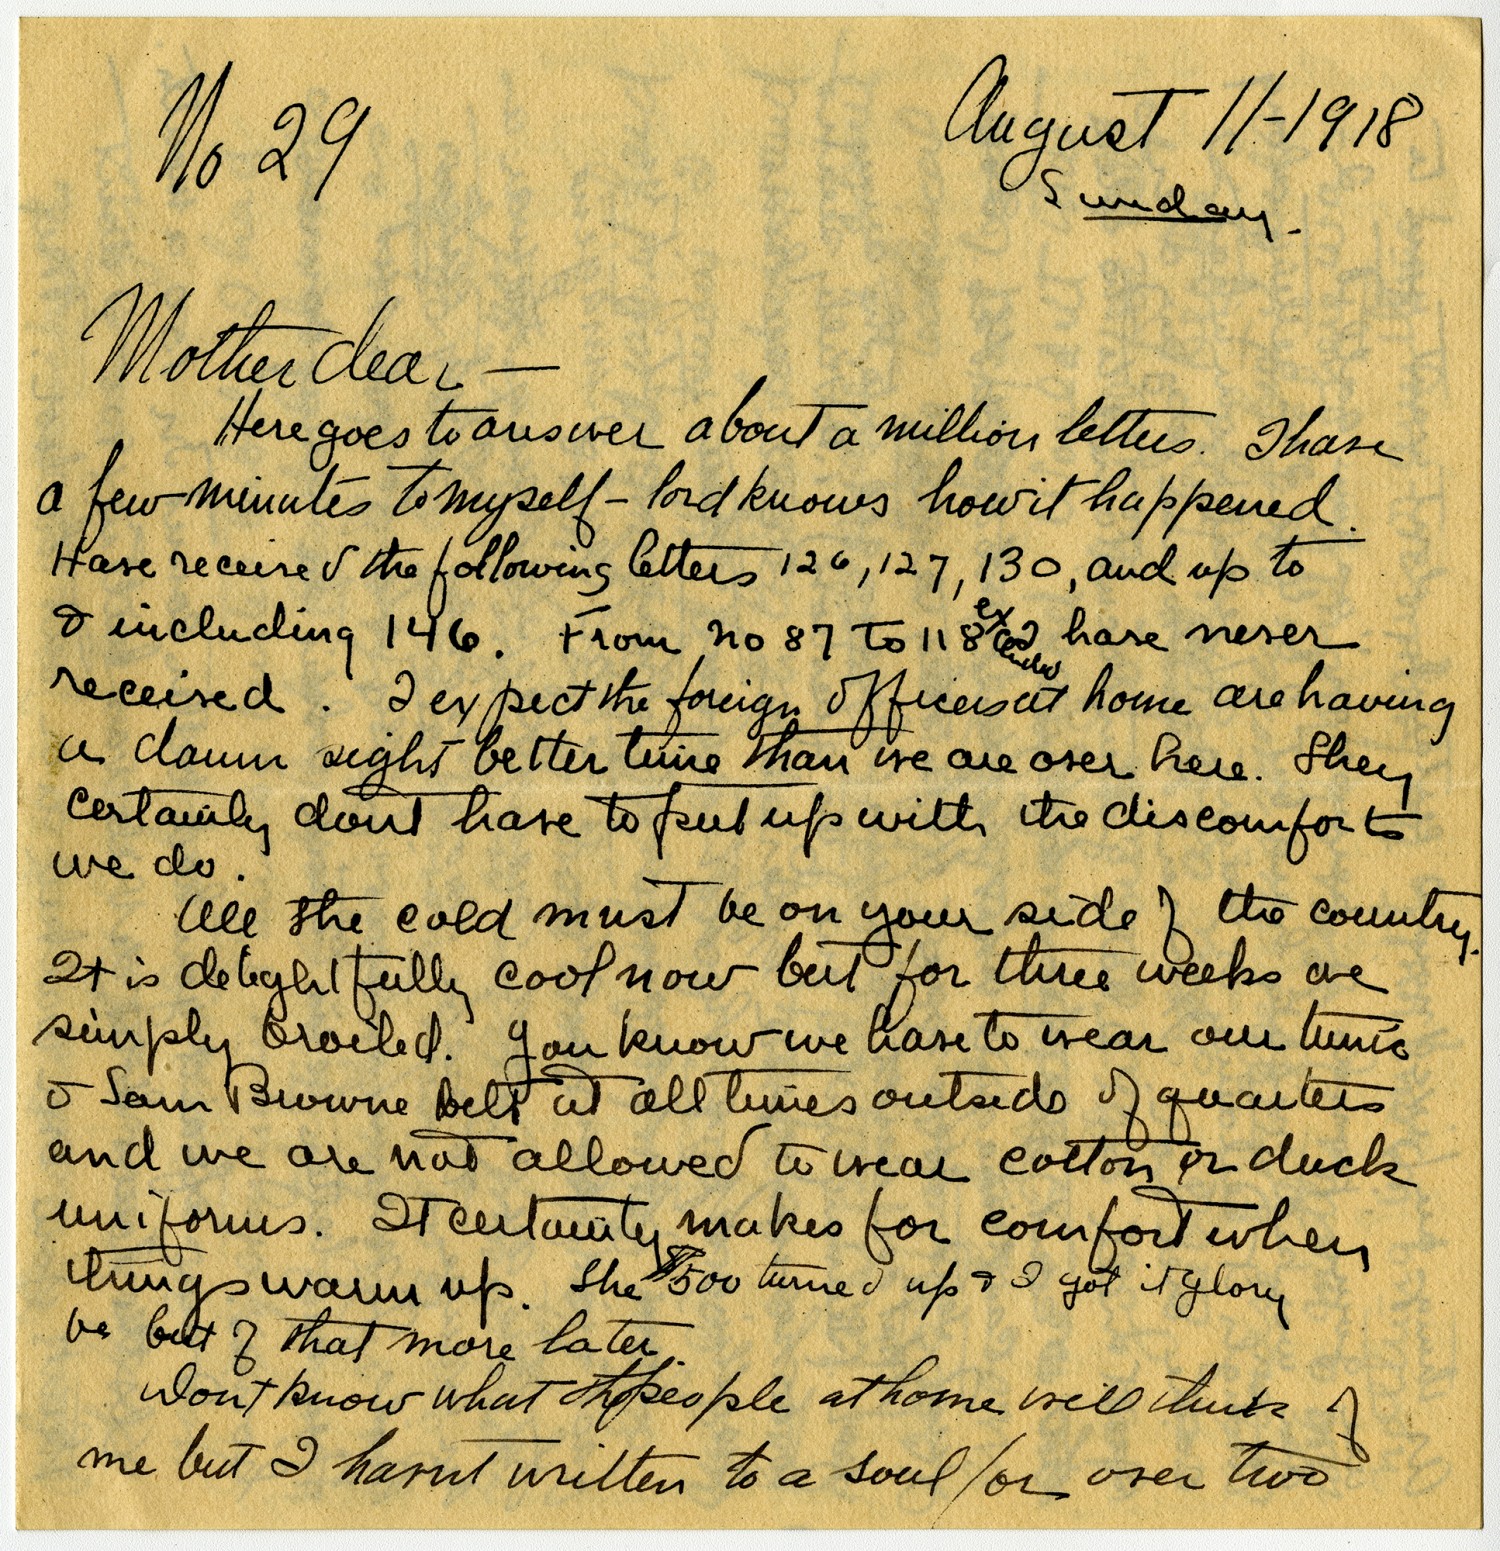 No 29
August 11-1918
Sunday.
Mother dear —
Here goes to answer about a million letters. I have
a few minutes to myself - lord knows how it happened.
Have received the following letters 126, 127, 130, and up to
& including 146. From no 87 to 118 I have never
received. I expect the foreign officers at home are having
a damn sight better time than we are over here. They
certainly dont have to put up with the discomforts
we do.
All the cold must be on your side of the country.
It is delightfully cool now but for three weeks we
simply broiled. You know we have to wear our tunic
& Sam Browne belt at all times outside of quarters
and we are not allowed to wear cotton or duck
uniforms. It certainly makes for comfort when
things warm up. The $500 turned up & I got it glory
be but of that more later.
Dont know what the people at home will think of
me but I havnt written to a soul for over two